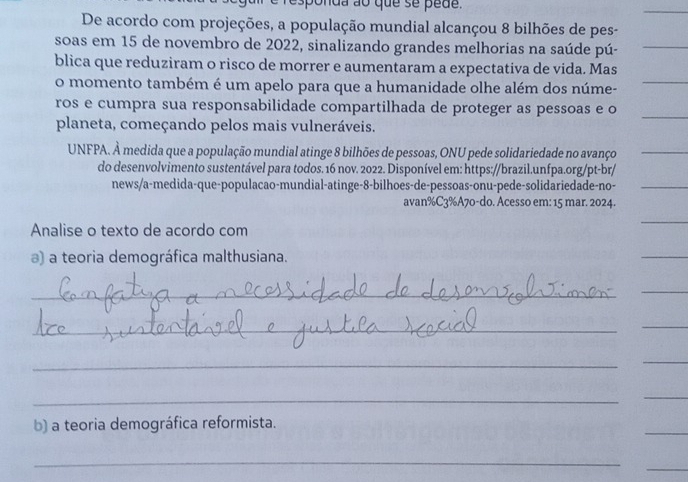 De acordo com projeções, a população mundial alcançou 8 bilhões de pes-
soas em 15 de novembro de 2022, sinalizando grandes melhorias na saúde pú-
blica que reduziram o risco de morrer e aumentaram a expectativa de vida. Mas
o momento também é um apelo para que a humanidade olhe além dos núme-
ros e cumpra sua responsabilidade compartilhada de proteger as pessoas e o
planeta, começando pelos mais vulneráveis.
UNFPA. À medida que a população mundial atinge 8 bilhões de pessoas, ONU pede solidariedade no avanço
do desenvolvimento sustentável para todos. 16 nov. 2022. Disponível em: https://brazil.unfpa.org/pt-br/
news/a-medida-que-populacao-mundial-atinge-8-bilhoes-de-pessoas-onu-pede-solidariedade-no-
avan%C3%A70-do. Acesso em: 15 mar. 2024.
Analise o texto de acordo com
a) a teoria demográfica malthusiana.
a necessidade de desenvolvimen
to sustentável e justiça social
b) a teoria demográfica reformista.